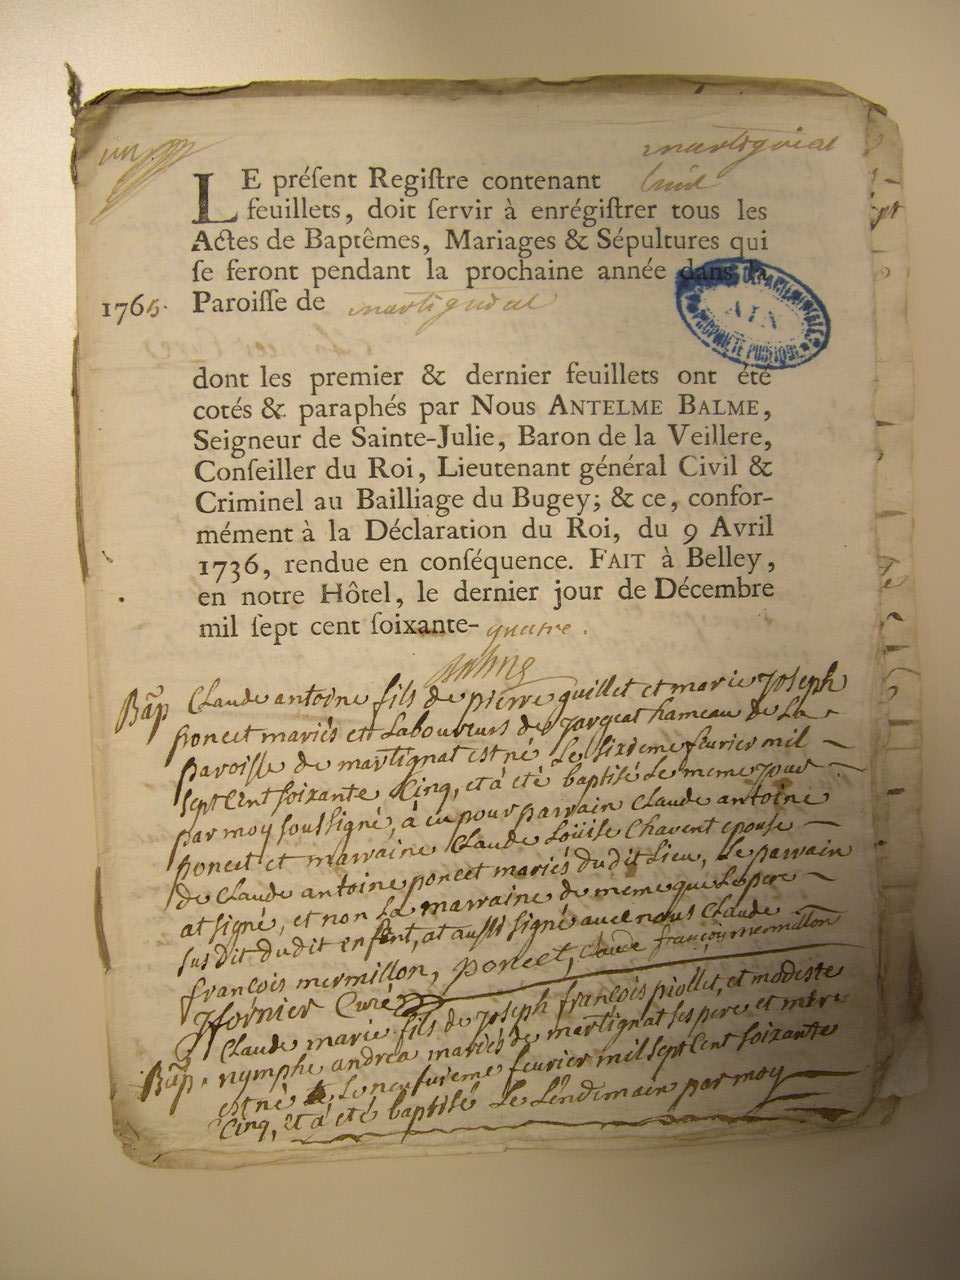 martignat
LE préſent Regiſtre contenant huit
feuillets, doit ſervir à enrégiſtrer tous les
Actes de Baptêmes, Mariages & Sépultures qui
ſe feront pendant la prochaine année dans la
1765. Paroiſſe de martignat
AIN
PROPRIÉTÉ PUBLIQUE
dont les premier & dernier feuillets ont été
cotés & paraphés par Nous ANTELME BALME,
Seigneur de Sainte-Julie, Baron de la Veillere,
Conſeiller du Roi, Lieutenant général Civil &
Criminel au Bailliage du Bugey; & ce, confor-
mément à la Déclaration du Roi, du 9 Avril
1736, rendue en conſéquence. FAIT à Belley,
en notre Hôtel, le dernier jour de Décembre
mil ſept cent ſoixante-quatre.
Bap Claude antoine fils de pierre guillet et marie Joseph
poncet mariés et Laboureurs de Jargeat hameau de La
paroisse de martignat est né Le sixieme feurier mil
sept Cent soixante Cinq, et à eté baptisé Le meme jour
par moy soussigné, à eu pour parrain Claude antoine
poncet et marraine Claude Loüise Chavent epouse
de Claude antoine poncet mariés dudit Lieu, Le parrain
at signé, et non La marraine de meme que Le pere
sus dit dudit enfent, at aussi signé avec nous Claude
françois mermillon, poncet, Claude françoy mermillon
Jfornier Curé
Claude marie fils de Joseph françois piollet, et modeste
Bap. nymphe andrea mariés de martignat ses pere et mere
est né Le neufvieme feurier mil sept Cent soixante
Cinq, et à eté baptisé Le Lendemain par moy